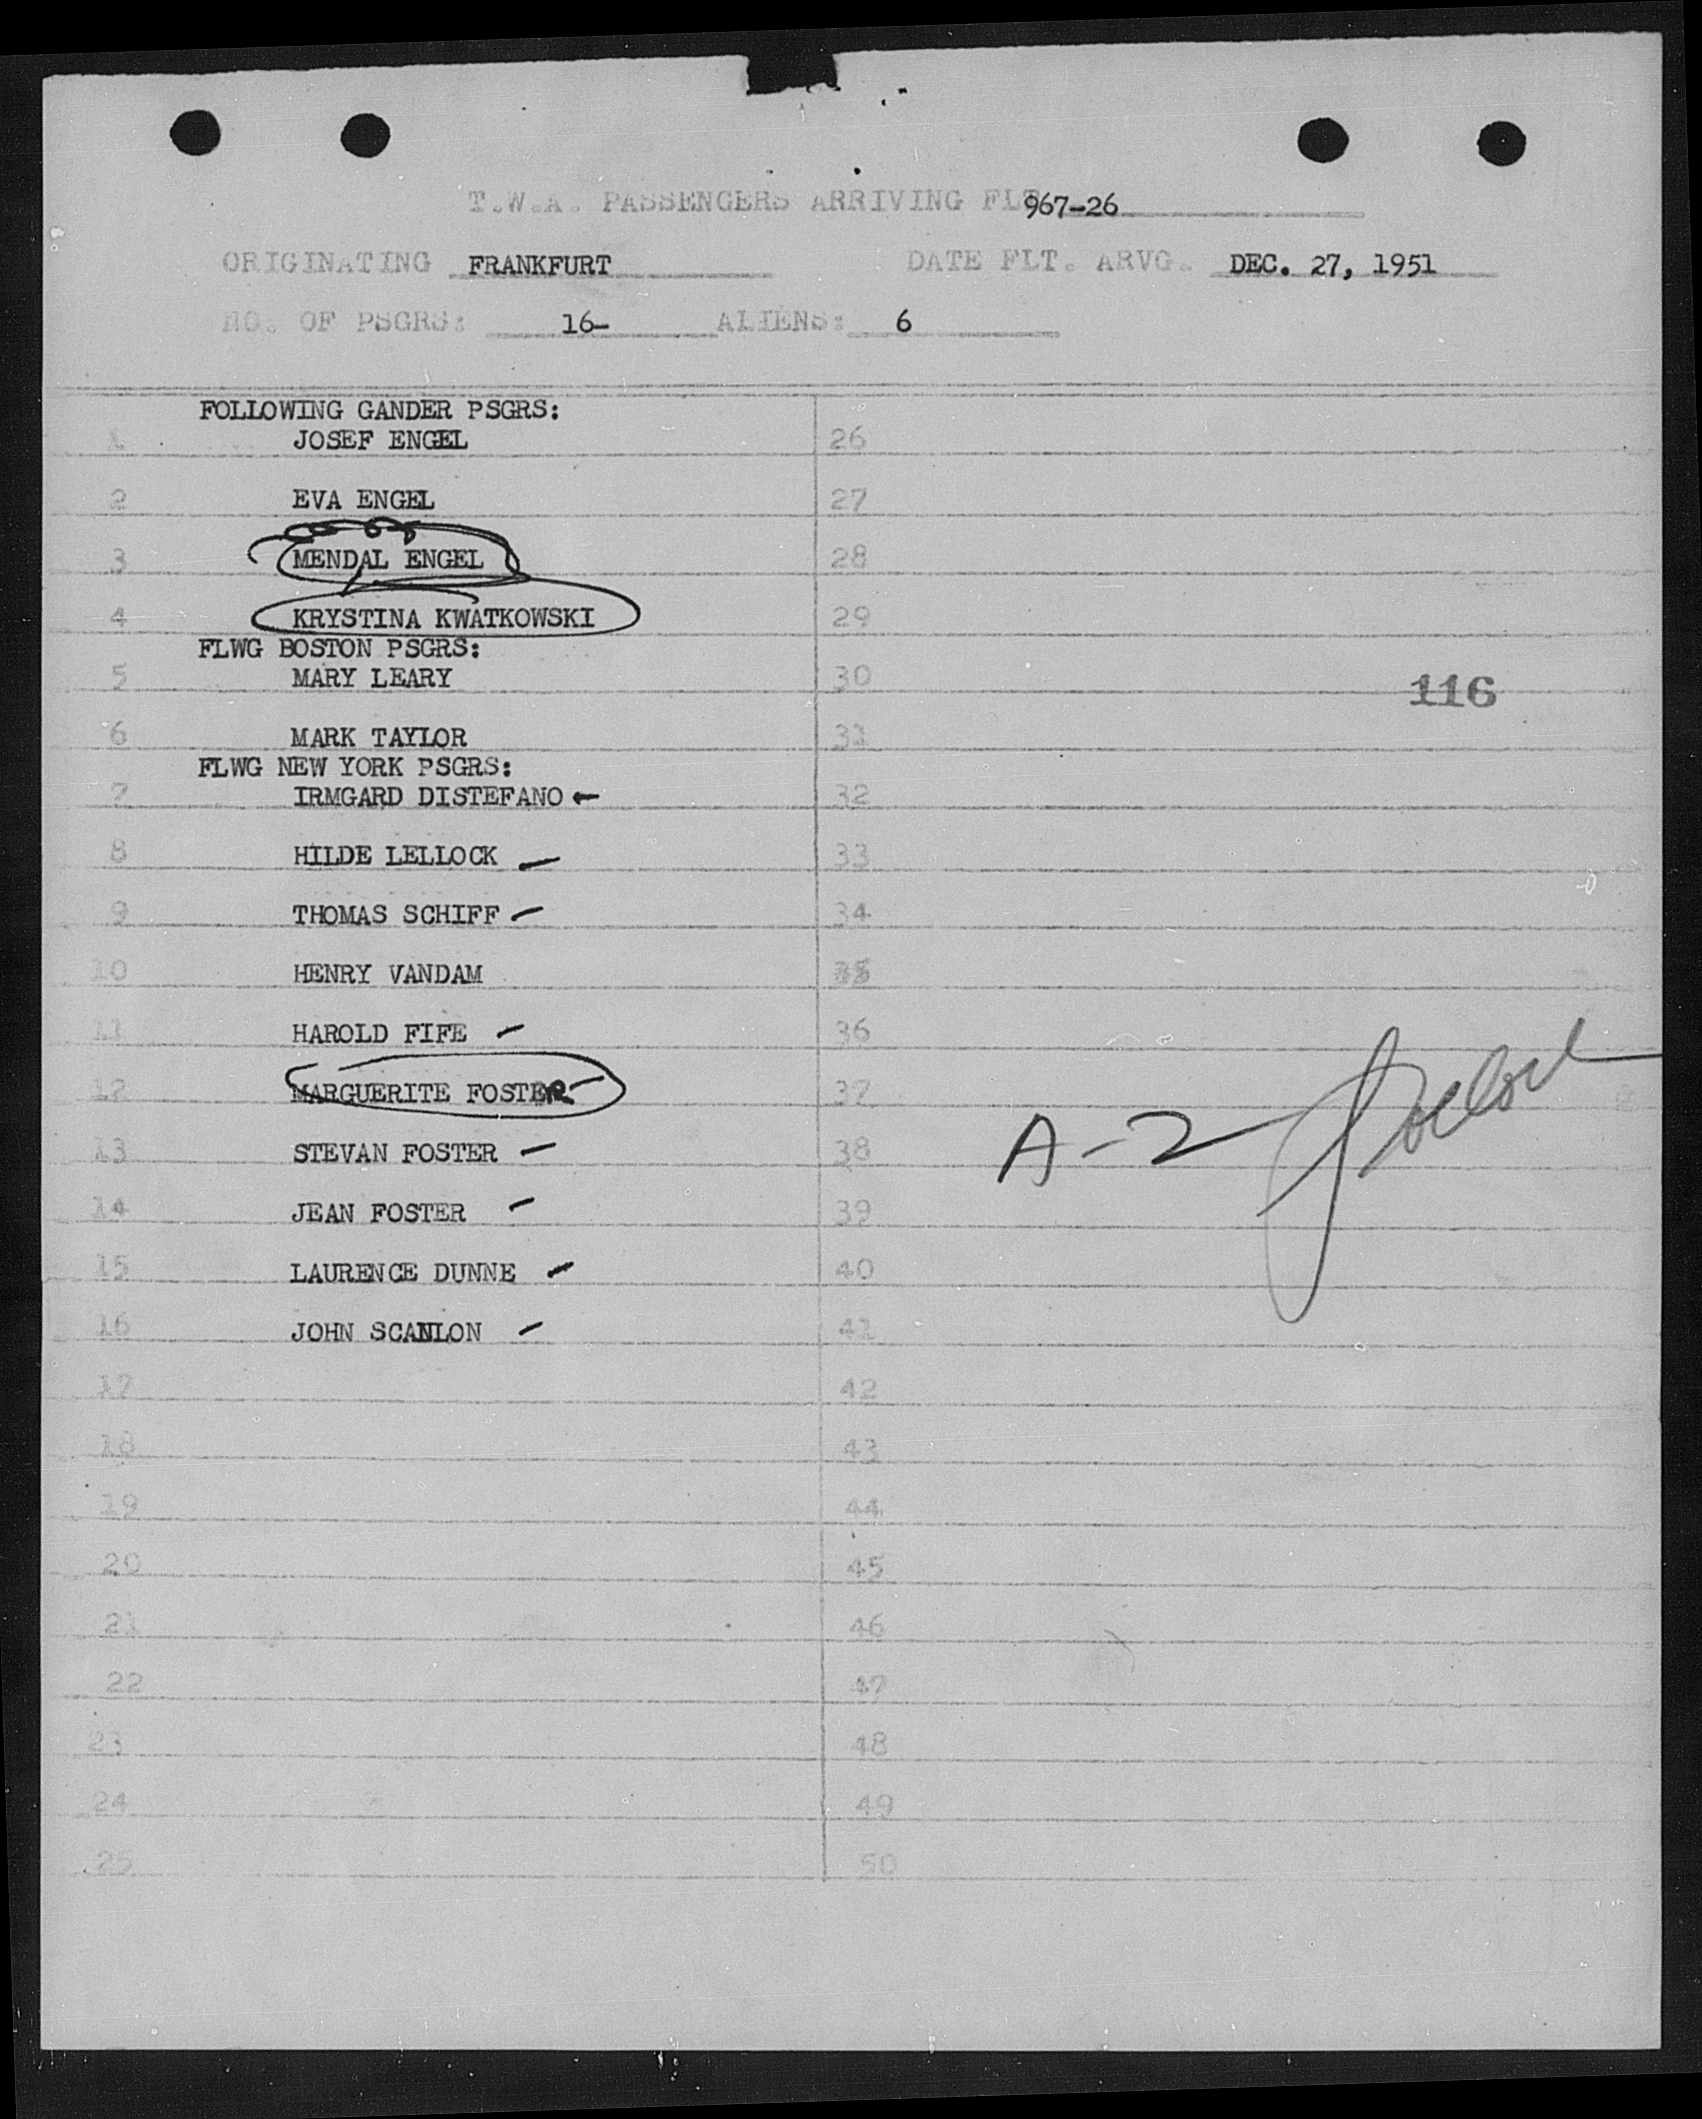 T.W.A. PASSENGERS ARRIVING FLT 967-26
ORIGINATING FRANKFURT DATE FLT. ARVG. DEC. 27, 1951
NO. OF PSGRS: 16- ALIENS: 6
FOLLOWING GANDER PSGRS:
1 JOSEF ENGEL 26
2 EVA ENGEL 27
3 MENDAL ENGEL 28
4 KRYSTINA KWATKOWSKI 29
FLWG BOSTON PSGRS:
5 MARY LEARY 30
116
6 MARK TAYLOR 31
FLWG NEW YORK PSGRS:
7 IRMGARD DISTEFANO 32
8 HILDE LELLOCK 33
9 THOMAS SCHIFF 34
10 HENRY VANDAM 35
11 HAROLD FIFE 36
12 MARGUERITE FOSTER 37
A-2
13 STEVAN FOSTER 38
14 JEAN FOSTER 39
15 LAURENCE DUNNE 40
16 JOHN SCANLON 41
17 42
18 43
19 44
20 45
21 46
22 47
23 48
24 49
25 50